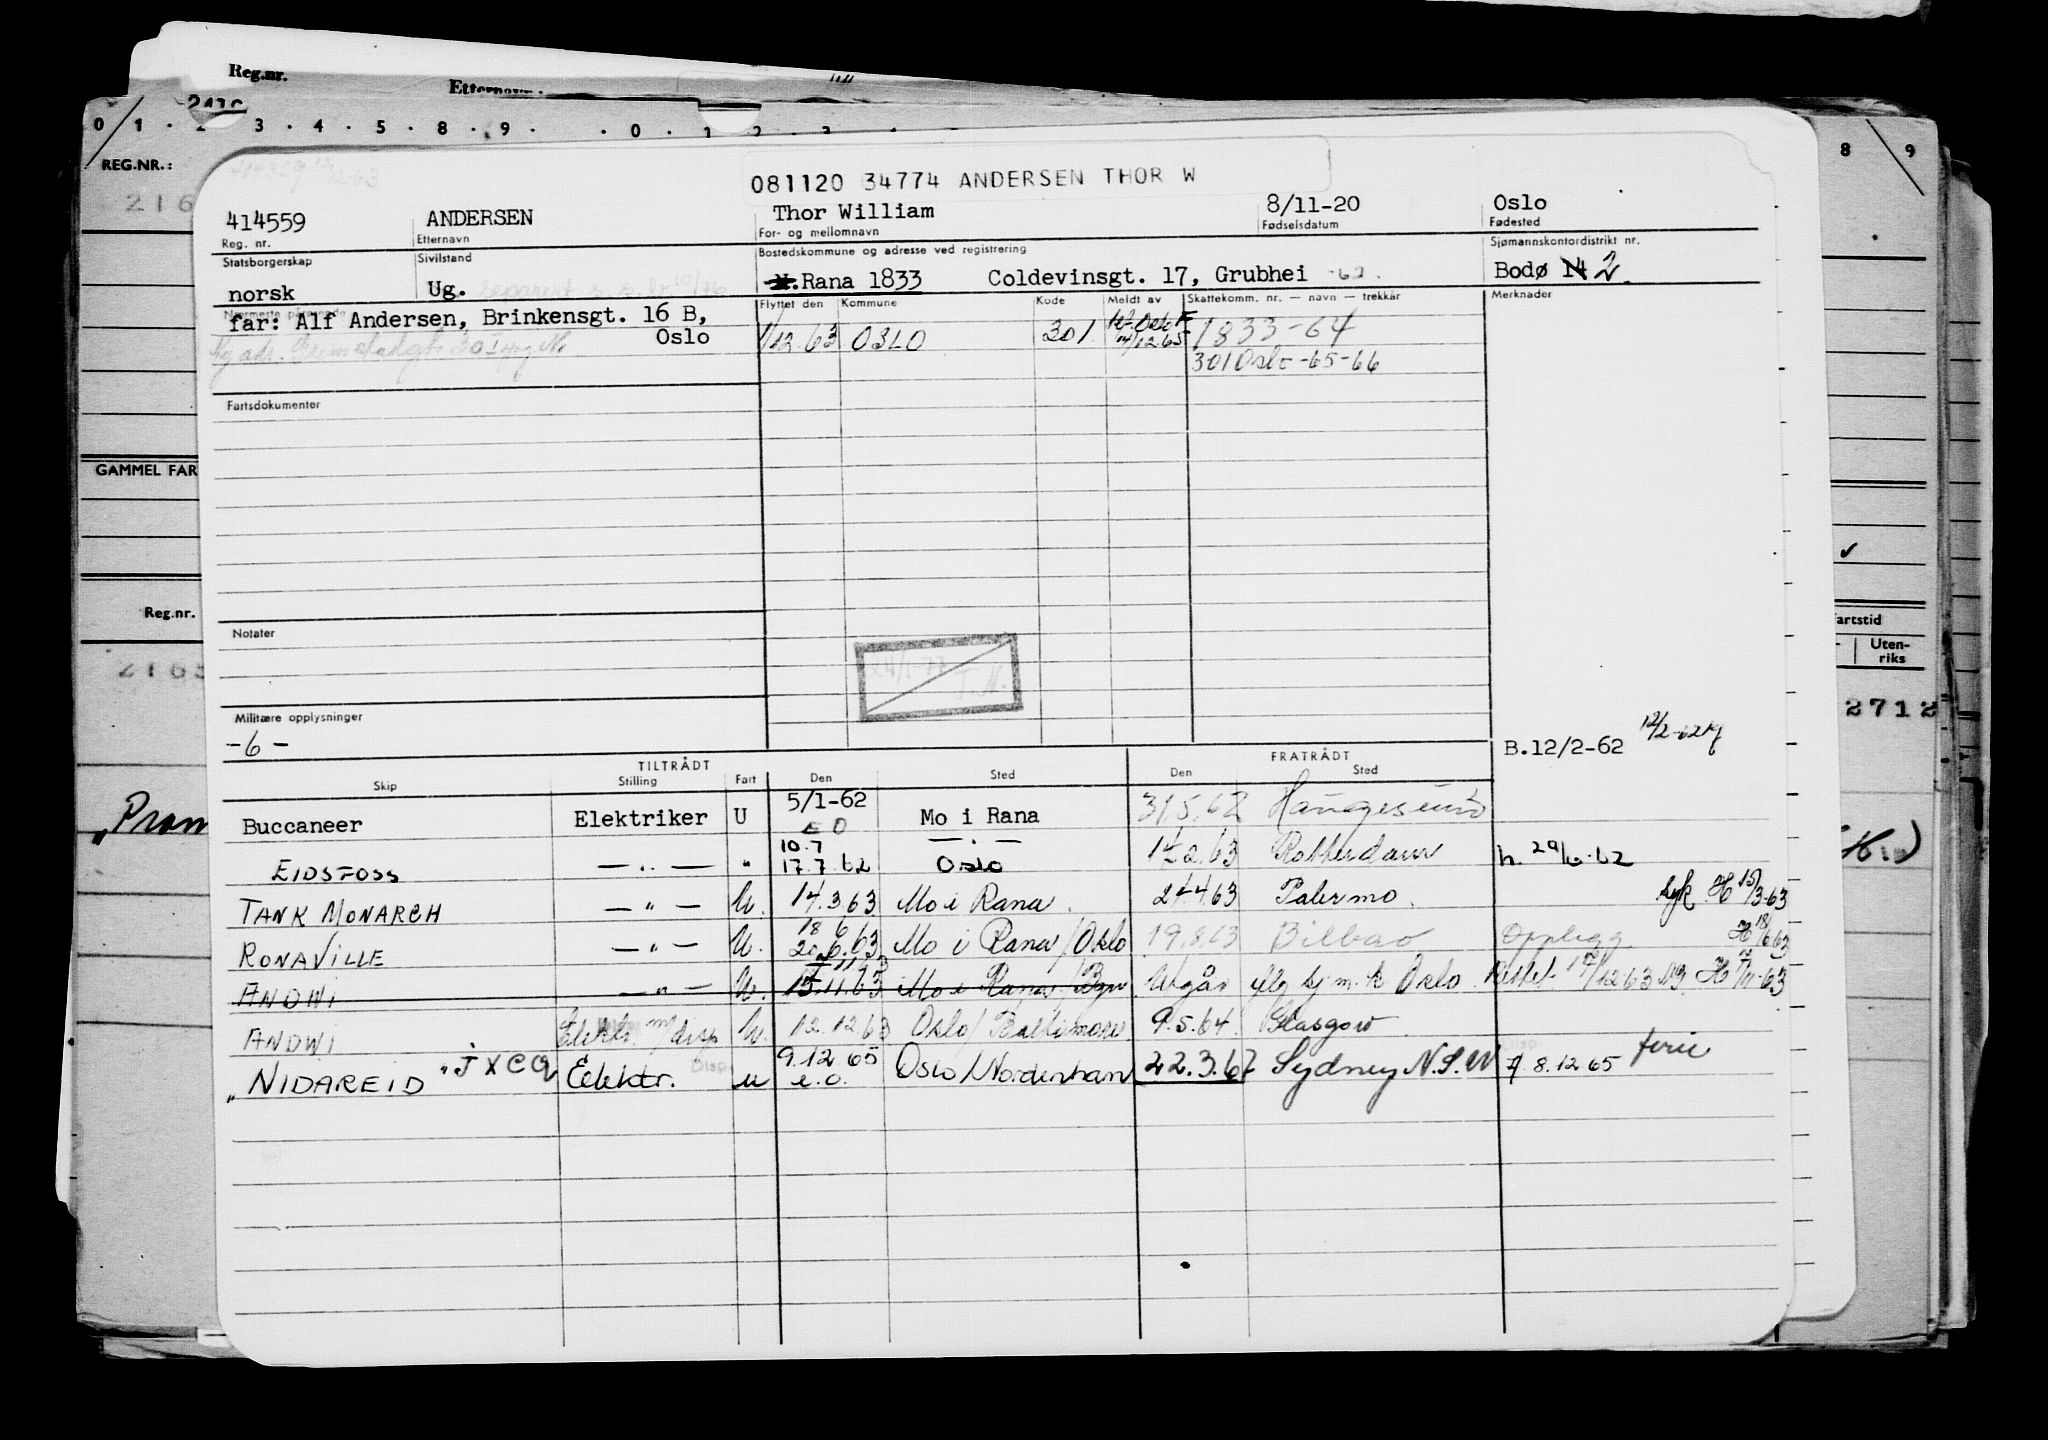 Reg.nr.
Etternavn
0 1 . 2 . 3 . 4 . 5 . 8 . 9 . . 0 . 1 2 3 8 9
REG.NR.:
216
081120 34774 ANDERSEN THOR W
414559 ANDERSEN Thor William 8/11-20 Oslo
Reg. nr. Etternavn For- og mellomnavn Fødselsdatum Fødested
Statsborgerskap Sivilstand Bostedskommune og adresse ved registrering Sjømannskontordistrikt nr.
norsk Ug. Rana 1833 Coldevinsgt. 17, Grubhei -62. Bodø 14 2.
Nærmeste pårørende Flyttet den Kommune Kode Meldt av Skattekomm. nr. — navn — trekkår Merknader
far: Alf Andersen, Brinkensgt. 16 B,
Oslo
1/12.63 OSLO 301. 1833-64
301 Oslo -65-66
Fartsdokumenter
GAMMEL FAR
Reg.nr.
Notater
artstid
Uten-
riks
2165
24/1-77 T.H.
Militære opplysninger
-6-
2712
B.12/2-62 12/2-62
TILTRÅDT FRATRÅDT
Skip Stilling Fart Den Sted Den Sted
Buccaneer Elektriker U 5/1-62 Mo i Rana 31.5.62 Haugesund
EIDSFOSS — " — " 10.7 17.7.62 — " — Oslo 14.2.63 Rotterdam h. 29/6-62
TANK MONARCH — " — U. 14.3.63 Mo i Rana. 24.4.63 Palermo. syk H 15/3-63
RONAVILLE — " — U. 18 6 20.6.63 Mo i Rana/Oslo 19.8.63 Bilbao Opplegg H 18/6 63
ANDWI — " — U. 15.11.63 Mo i Rana/Bgn Utgår iflg sjm.k Oslo H /11-63
ANDWI Elektr. m/disp U. 12.12.63 Oslo/Baltimore 9.5.64. Glasgow
"NIDAREID" JXCQ Elektr. Disp. u 9.12 65 e.o. Oslo/Nordenham 22.3.67 Sydney N.S.W 8.12 65 ferie
"Pron